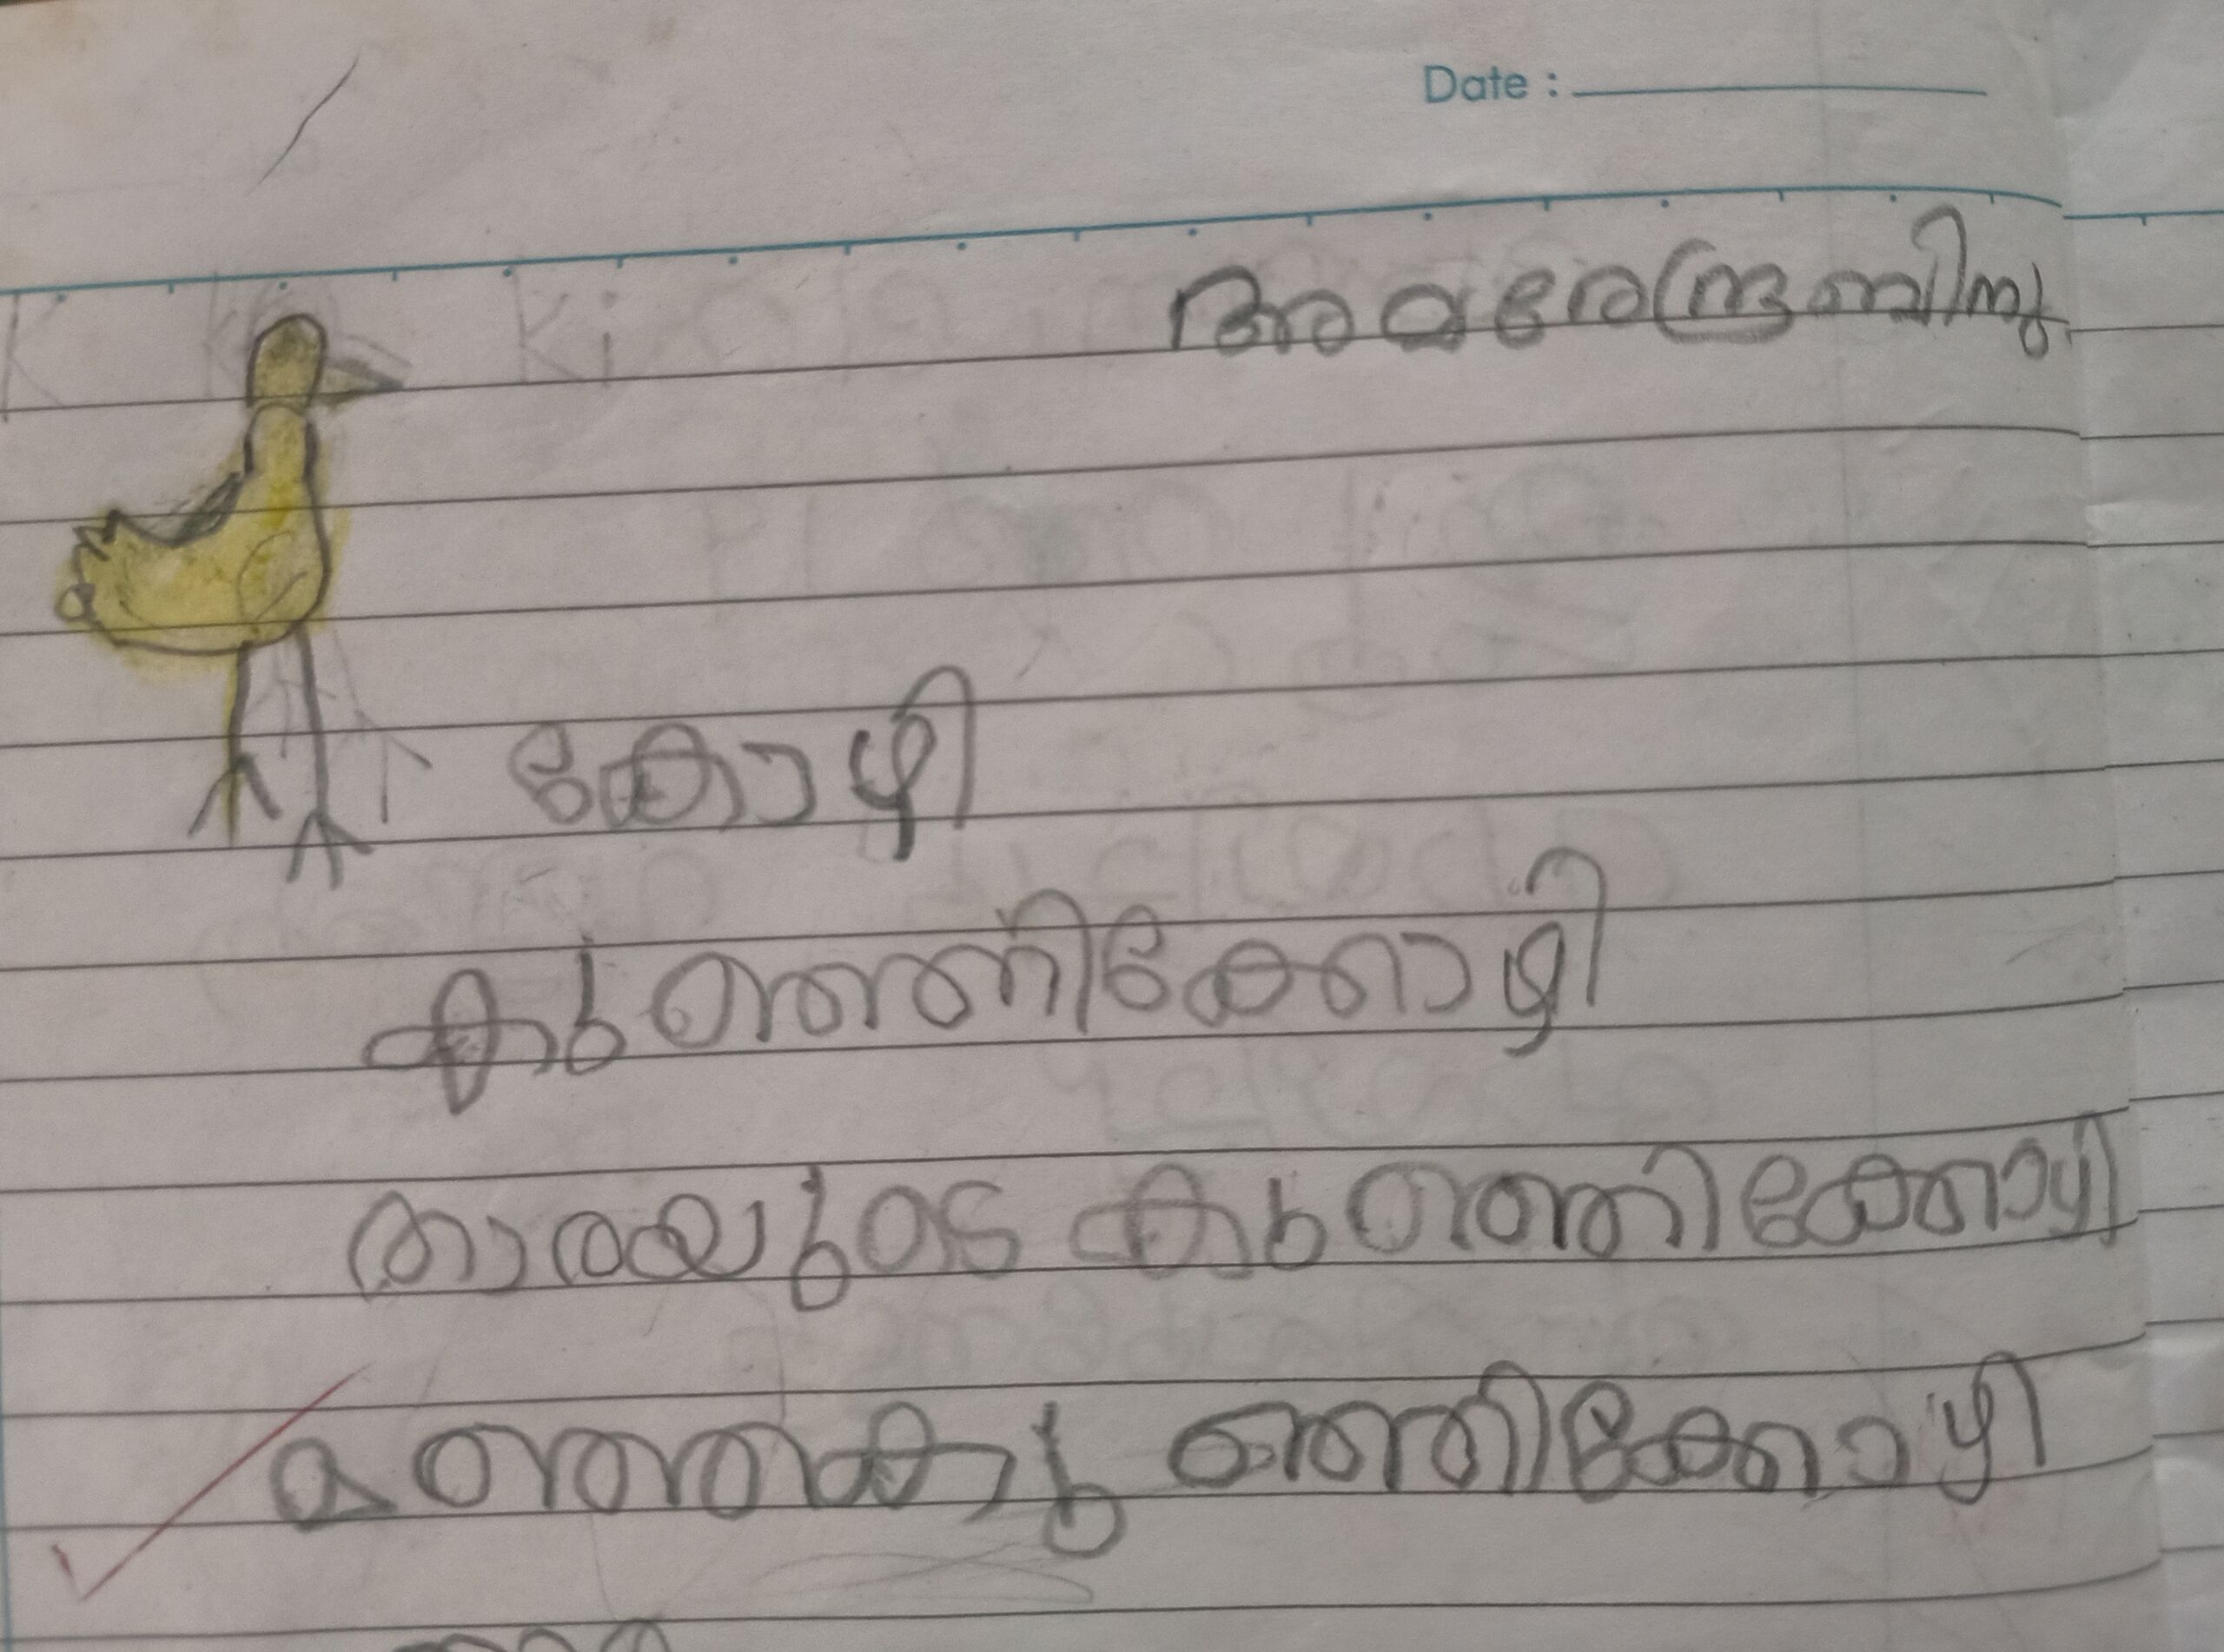 Date :
അമരേന്ദ്രബിനു
കോഴി
കുഞ്ഞിക്കോഴി
താരയുടെ കുഞ്ഞിക്കോഴി
മഞ്ഞകുഞ്ഞിക്കോഴി